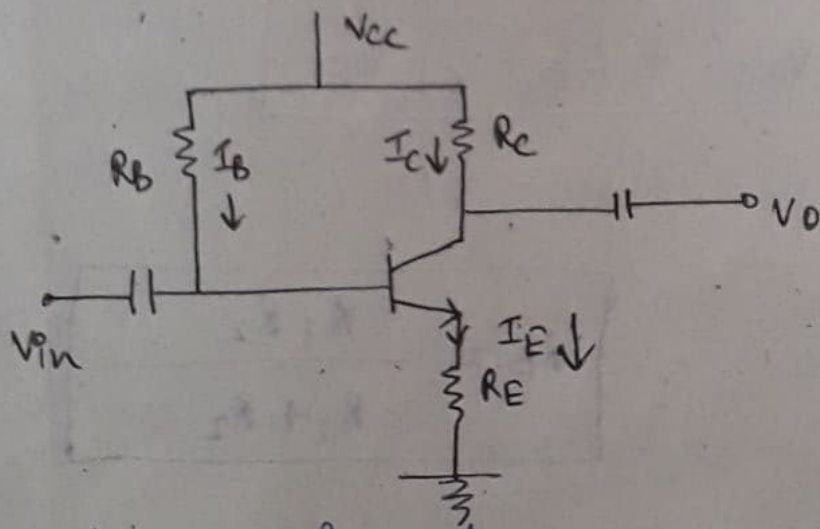 Vcc
RB
IB
IC
RC
Vo
Vin
IE
RE